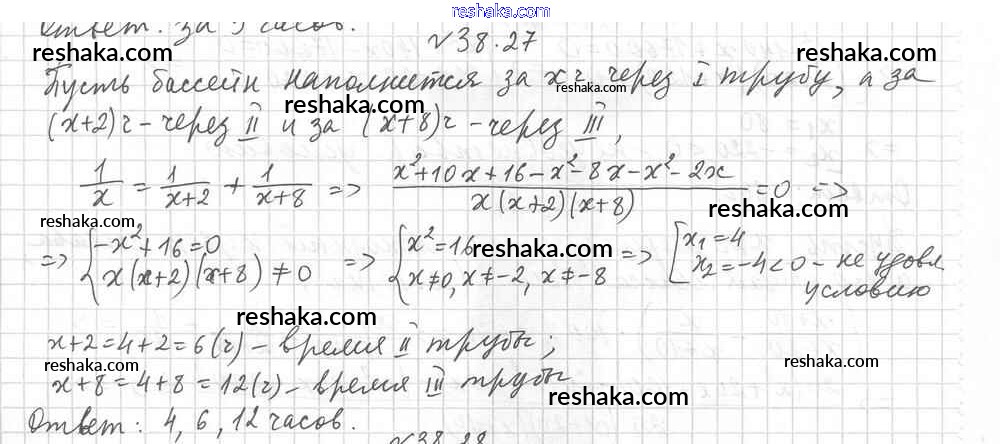 reshaka.com
Ответ: за 5 часов.
№38.27
reshaka.com reshaka.com
Пусть бассейн наполнится за x ч через I трубу, а за
reshaka.com reshaka.com reshaka.com
(x+2) ч - через II и за (x+8) ч - через III,
1/x = 1/(x+2) + 1/(x+8) => (x²+10x+16-x²-8x-x²-2x)/(x(x+2)(x+8)) = 0 =>
reshaka.com reshaka.com
=> { -x²+16=0 ; x(x+2)(x+8)≠0 => { x²=16 ; x≠0, x≠-2, x≠-8 => [ x₁=4 ; x₂=-4<0 - не удовл
reshaka.com reshaka.com
условию
reshaka.com
x+2=4+2=6(ч) - время II трубы;
reshaka.com reshaka.com
x+8=4+8=12(ч) - время III трубы
reshaka.com
Ответ: 4, 6, 12 часов.
reshaka.com
№38.28